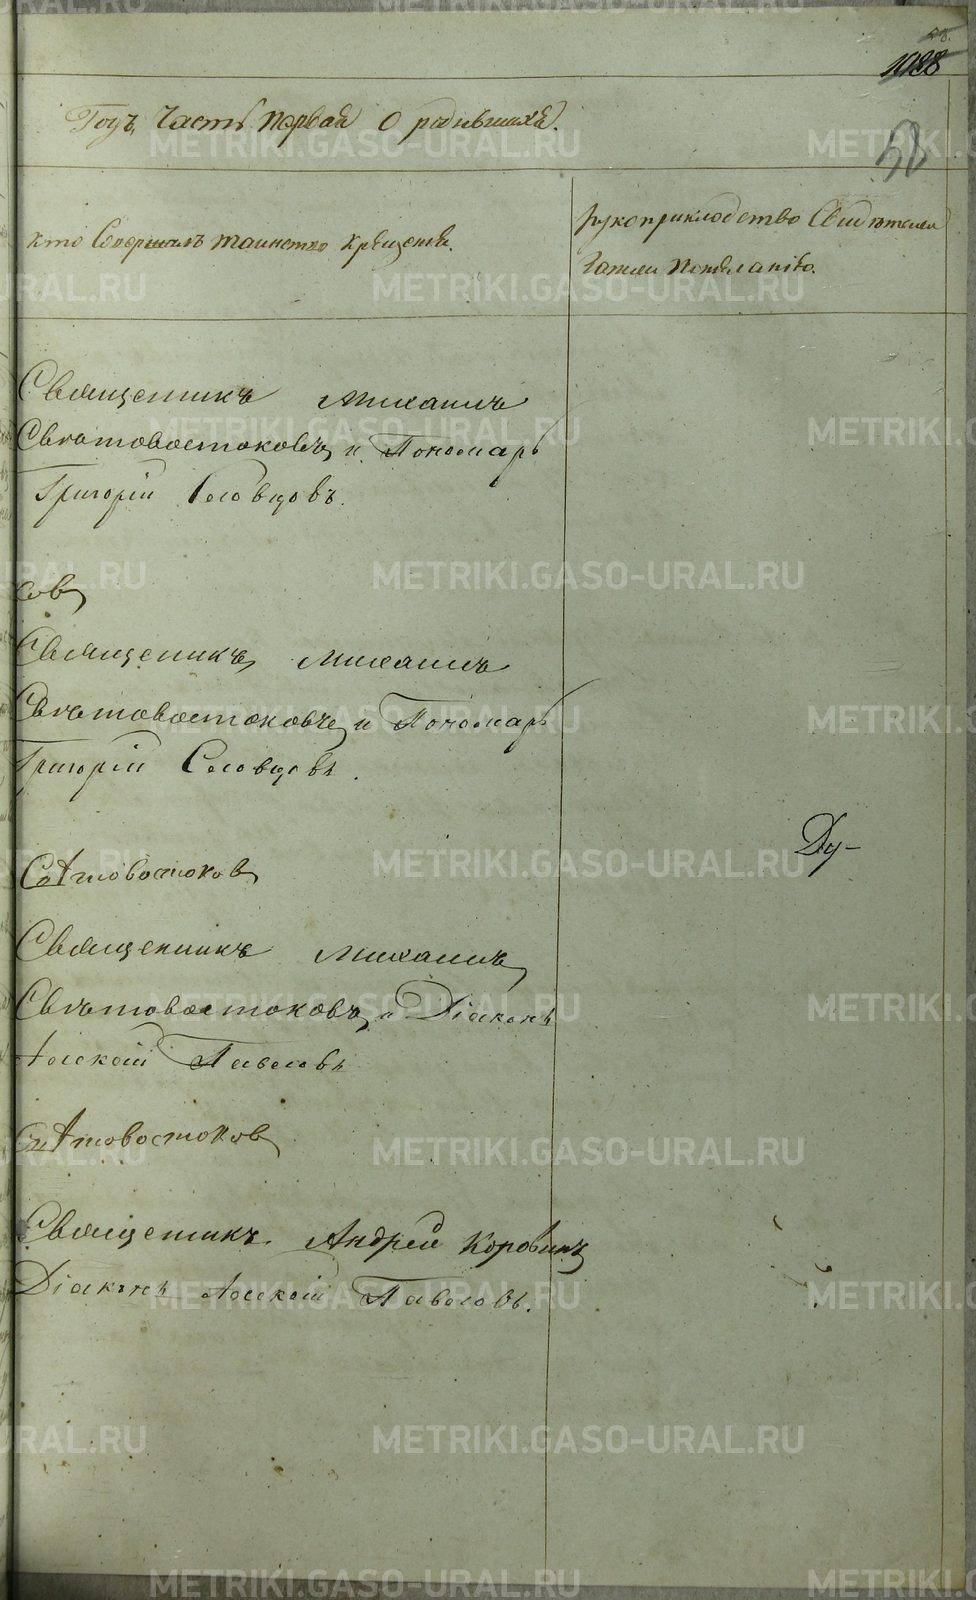 58
Годъ, Часть Первая О родившихся.
кто Совершалъ таинство крещенія.
рукоприкладство Свидѣтелей
записи по желанію.
Священикъ Михаилъ
Свѣтовостоковъ и Пономарь
Григорій Словцовъ.
Священикъ Михаилъ
Свѣтовостоковъ и Пономарь
Григорій Словцовъ.
Ду-
Свѣтовостоковъ
Священикъ Михаилъ
Свѣтовостоковъ и Діаконъ
Павеловъ
Свѣтовостоковъ
Священикъ Андрей Коровинъ
Діаконъ Павеловъ.
METRIKI.GASO-URAL.RU